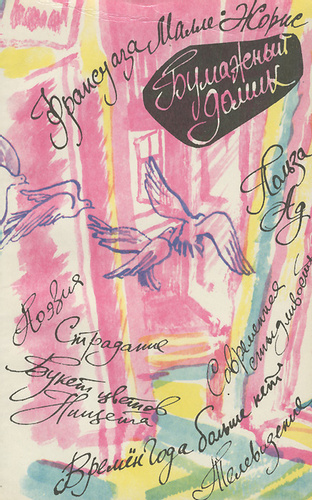 Франсуаза Малле-Жорис
Бумажный
домик
Польза
Яд
Поэзия
Страдание
Букет цветов
Нищета
Современная
стыдливость
Времён года больше нет
Телевидение